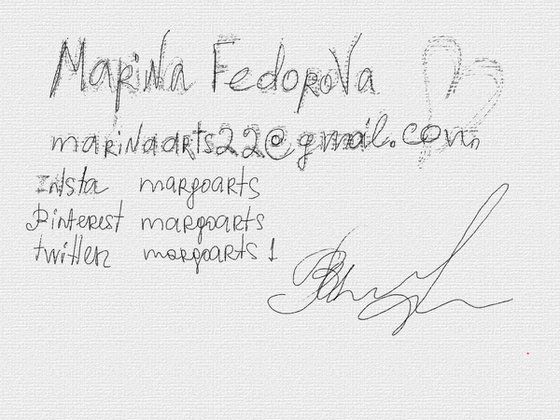 Marina Fedorova
marinaarts22@gmail.com
Insta margoarts
Pinterest margoarts
twitter margoarts1